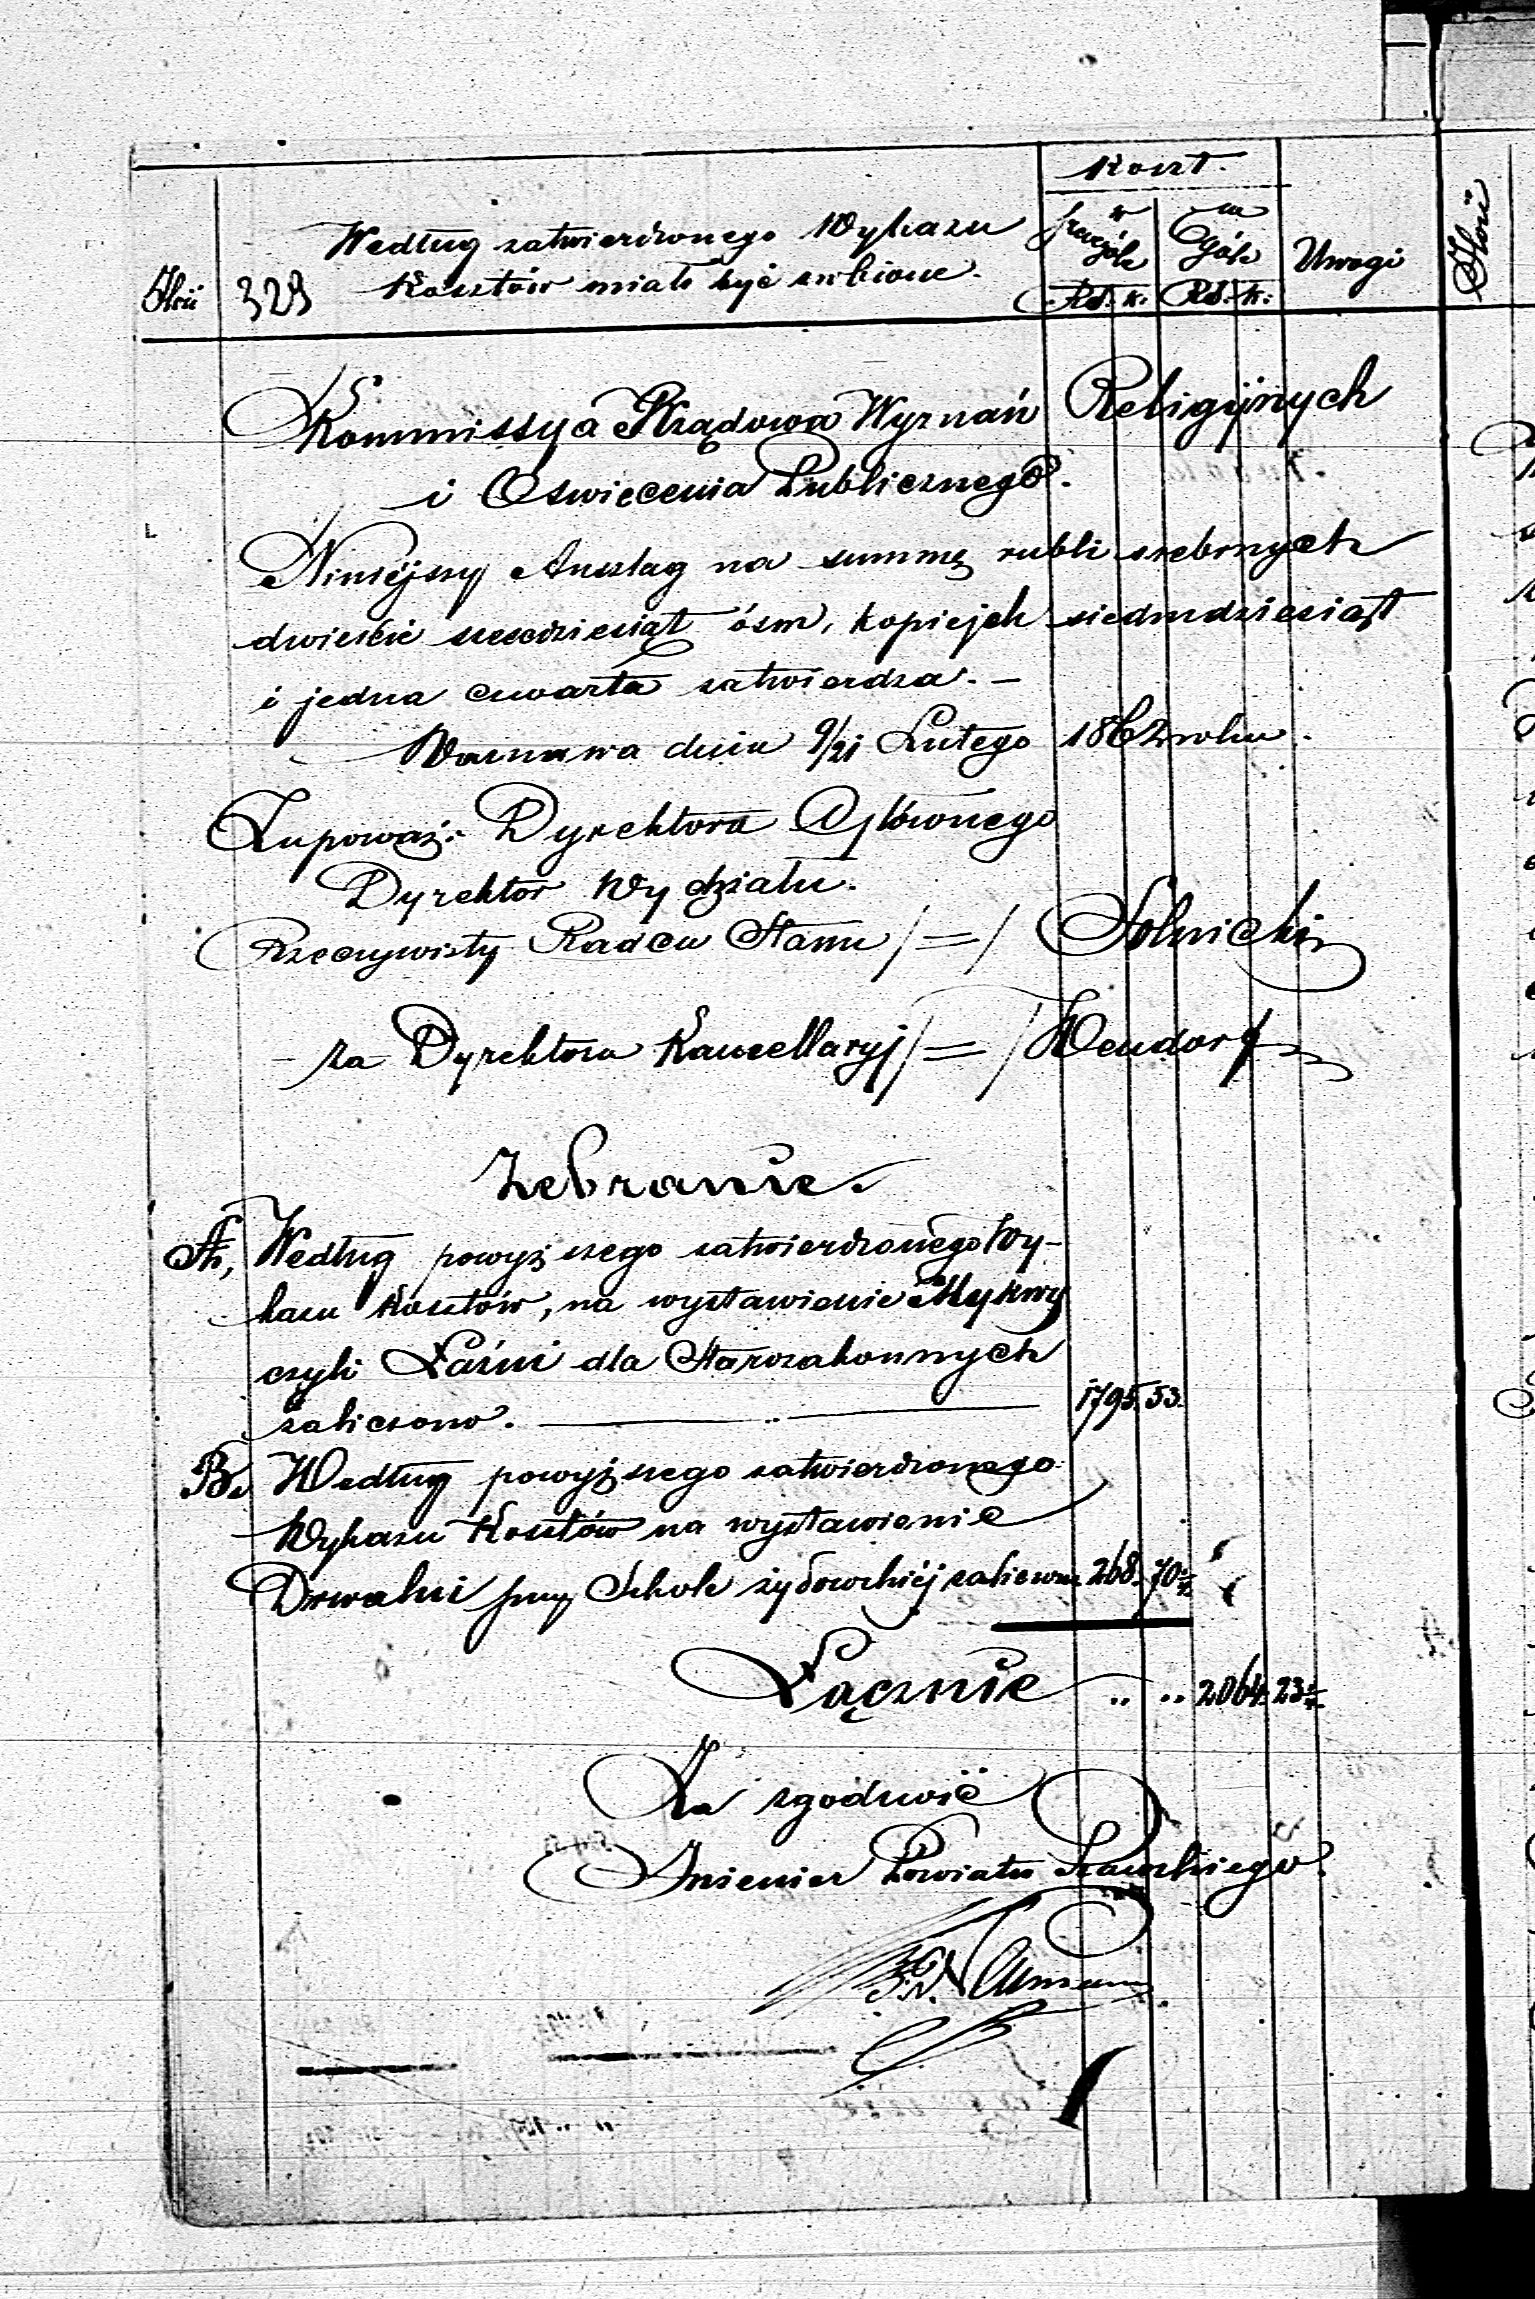 Koszt.
Ilość
329
Według zatwierdzonego Wykazu
Kosztów miało być zrobione.
w szczególe
na Ogóle
Uwagi
Rs. k. Rs. k.
Ilość
Kommissya Rządowa Wyznań Religijnych
i Oświecenia Publicznego.
Niniejszy Anszlag na summę rubli srebrnych
dwieście sześćdziesiąt ósm, kopiejek siedmdziesiąt
i jedna czwarta zatwierdza. —
Warszawa dnia 9/21 Lutego 1862 roku.
Z upoważ: Dyrektora Głównego
Dyrektor Wydziału.
Rzeczywisty Radca Stanu /=/
za Dyrektora Kancellaryj /=/
Zebranie.
A, Według powyższego zatwierdzonego Wy-
kazu Kosztów, na wystawienie Mykwy
czyli Łaźni dla Starozakonnych
zaliczono. — 1795. 53.
B. Według powyższego zatwierdzonego
Wykazu Kosztów na wystawienie
Drwalni przy Szkole żydowskiéj zaliczono 268. 70¼
Łącznie .. .. 2064. 23¼
Za zgodność
Inżenier Powiatu Rawskiego.